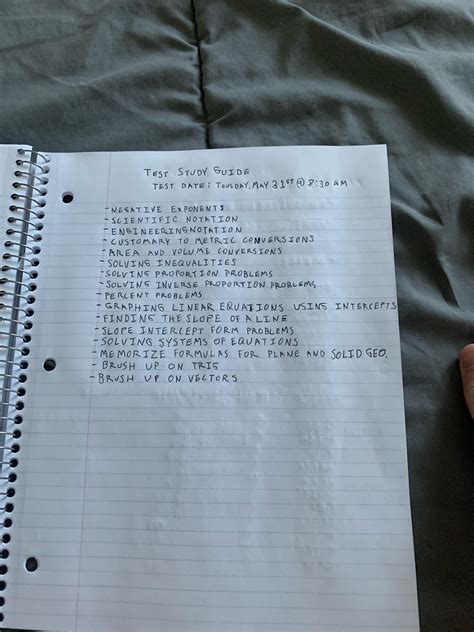 TEST STUDY GUIDE
TEST DATE: TUESDAY, MAY 31ST @ 8:30 AM
- NEGATIVE EXPONENTS
- SCIENTIFIC NOTATION
- ENGINEERING NOTATION
- CUSTOMARY TO METRIC CONVERSIONS
- AREA AND VOLUME CONVERSIONS
- SOLVING INEQUALITIES
- SOLVING PROPORTION PROBLEMS
- SOLVING INVERSE PROPORTION PROBLEMS
- PERCENT PROBLEMS
- GRAPHING LINEAR EQUATIONS USING INTERCEPTS
- FINDING THE SLOPE OF A LINE
- SLOPE INTERCEPT FORM PROBLEMS
- SOLVING SYSTEMS OF EQUATIONS
- MEMORIZE FORMULAS FOR PLANE AND SOLID GEO.
- BRUSH UP ON TRIG
- BRUSH UP ON VECTORS